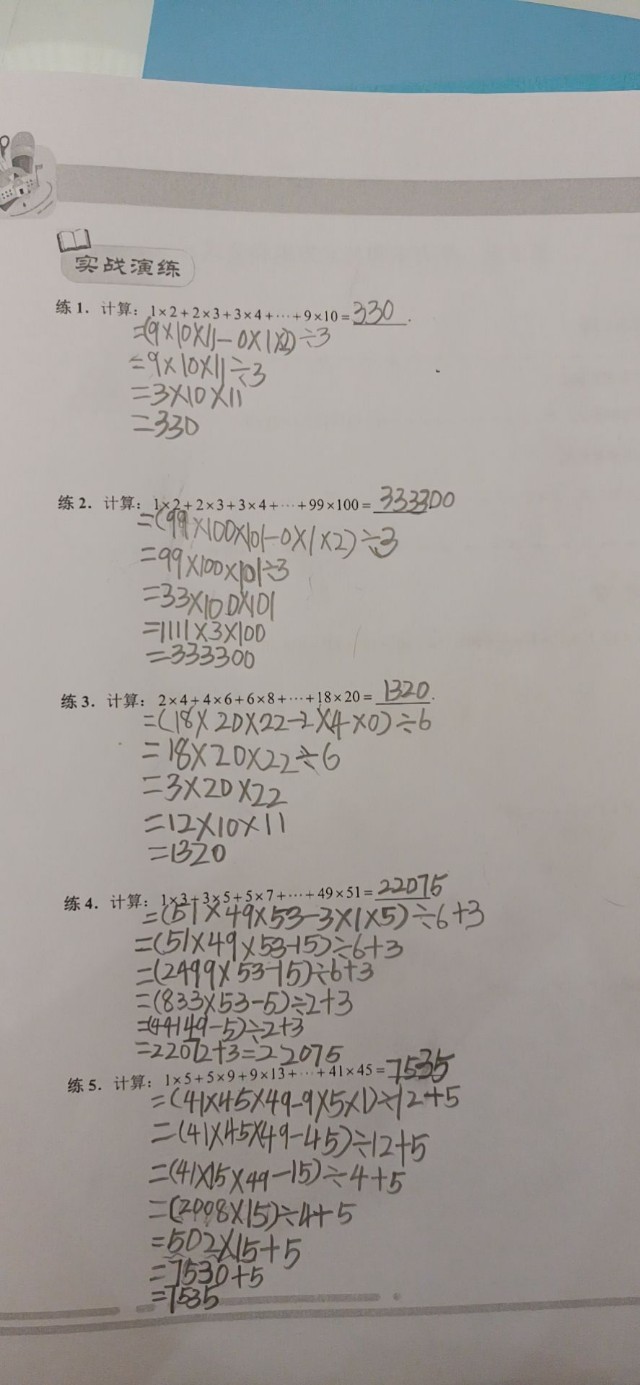 实战演练
练1. 计算：1×2+2×3+3×4+⋯+9×10=330.
=(9×10×11-0×1×2)÷3
=9×10×11÷3
=3×10×11
=330
练2. 计算：1×2+2×3+3×4+⋯+99×100=333300
=(99×100×101-0×1×2)÷3
=99×100×101÷3
=33×100×101
=1111×3×100
=333300
练3. 计算：2×4+4×6+6×8+⋯+18×20=1320.
=(18×20×22-2×4×0)÷6
=18×20×22÷6
=3×20×22
=12×10×11
=1320
练4. 计算：1×3+3×5+5×7+⋯+49×51=22075
=(51×49×53-3×1×5)÷6+3
=(51×49×53-15)÷6+3
=(2499×53-15)÷6+3
=(833×53-5)÷2+3
=(44149-5)÷2+3
=22072+3=22075
练5. 计算：1×5+5×9+9×13+⋯+41×45=7535
=(41×45×49-9×5×1)÷12+5
=(41×45×49-45)÷12+5
=(41×15×49-15)÷4+5
=(2008×15)÷4+5
=502×15+5
=7530+5
=7535